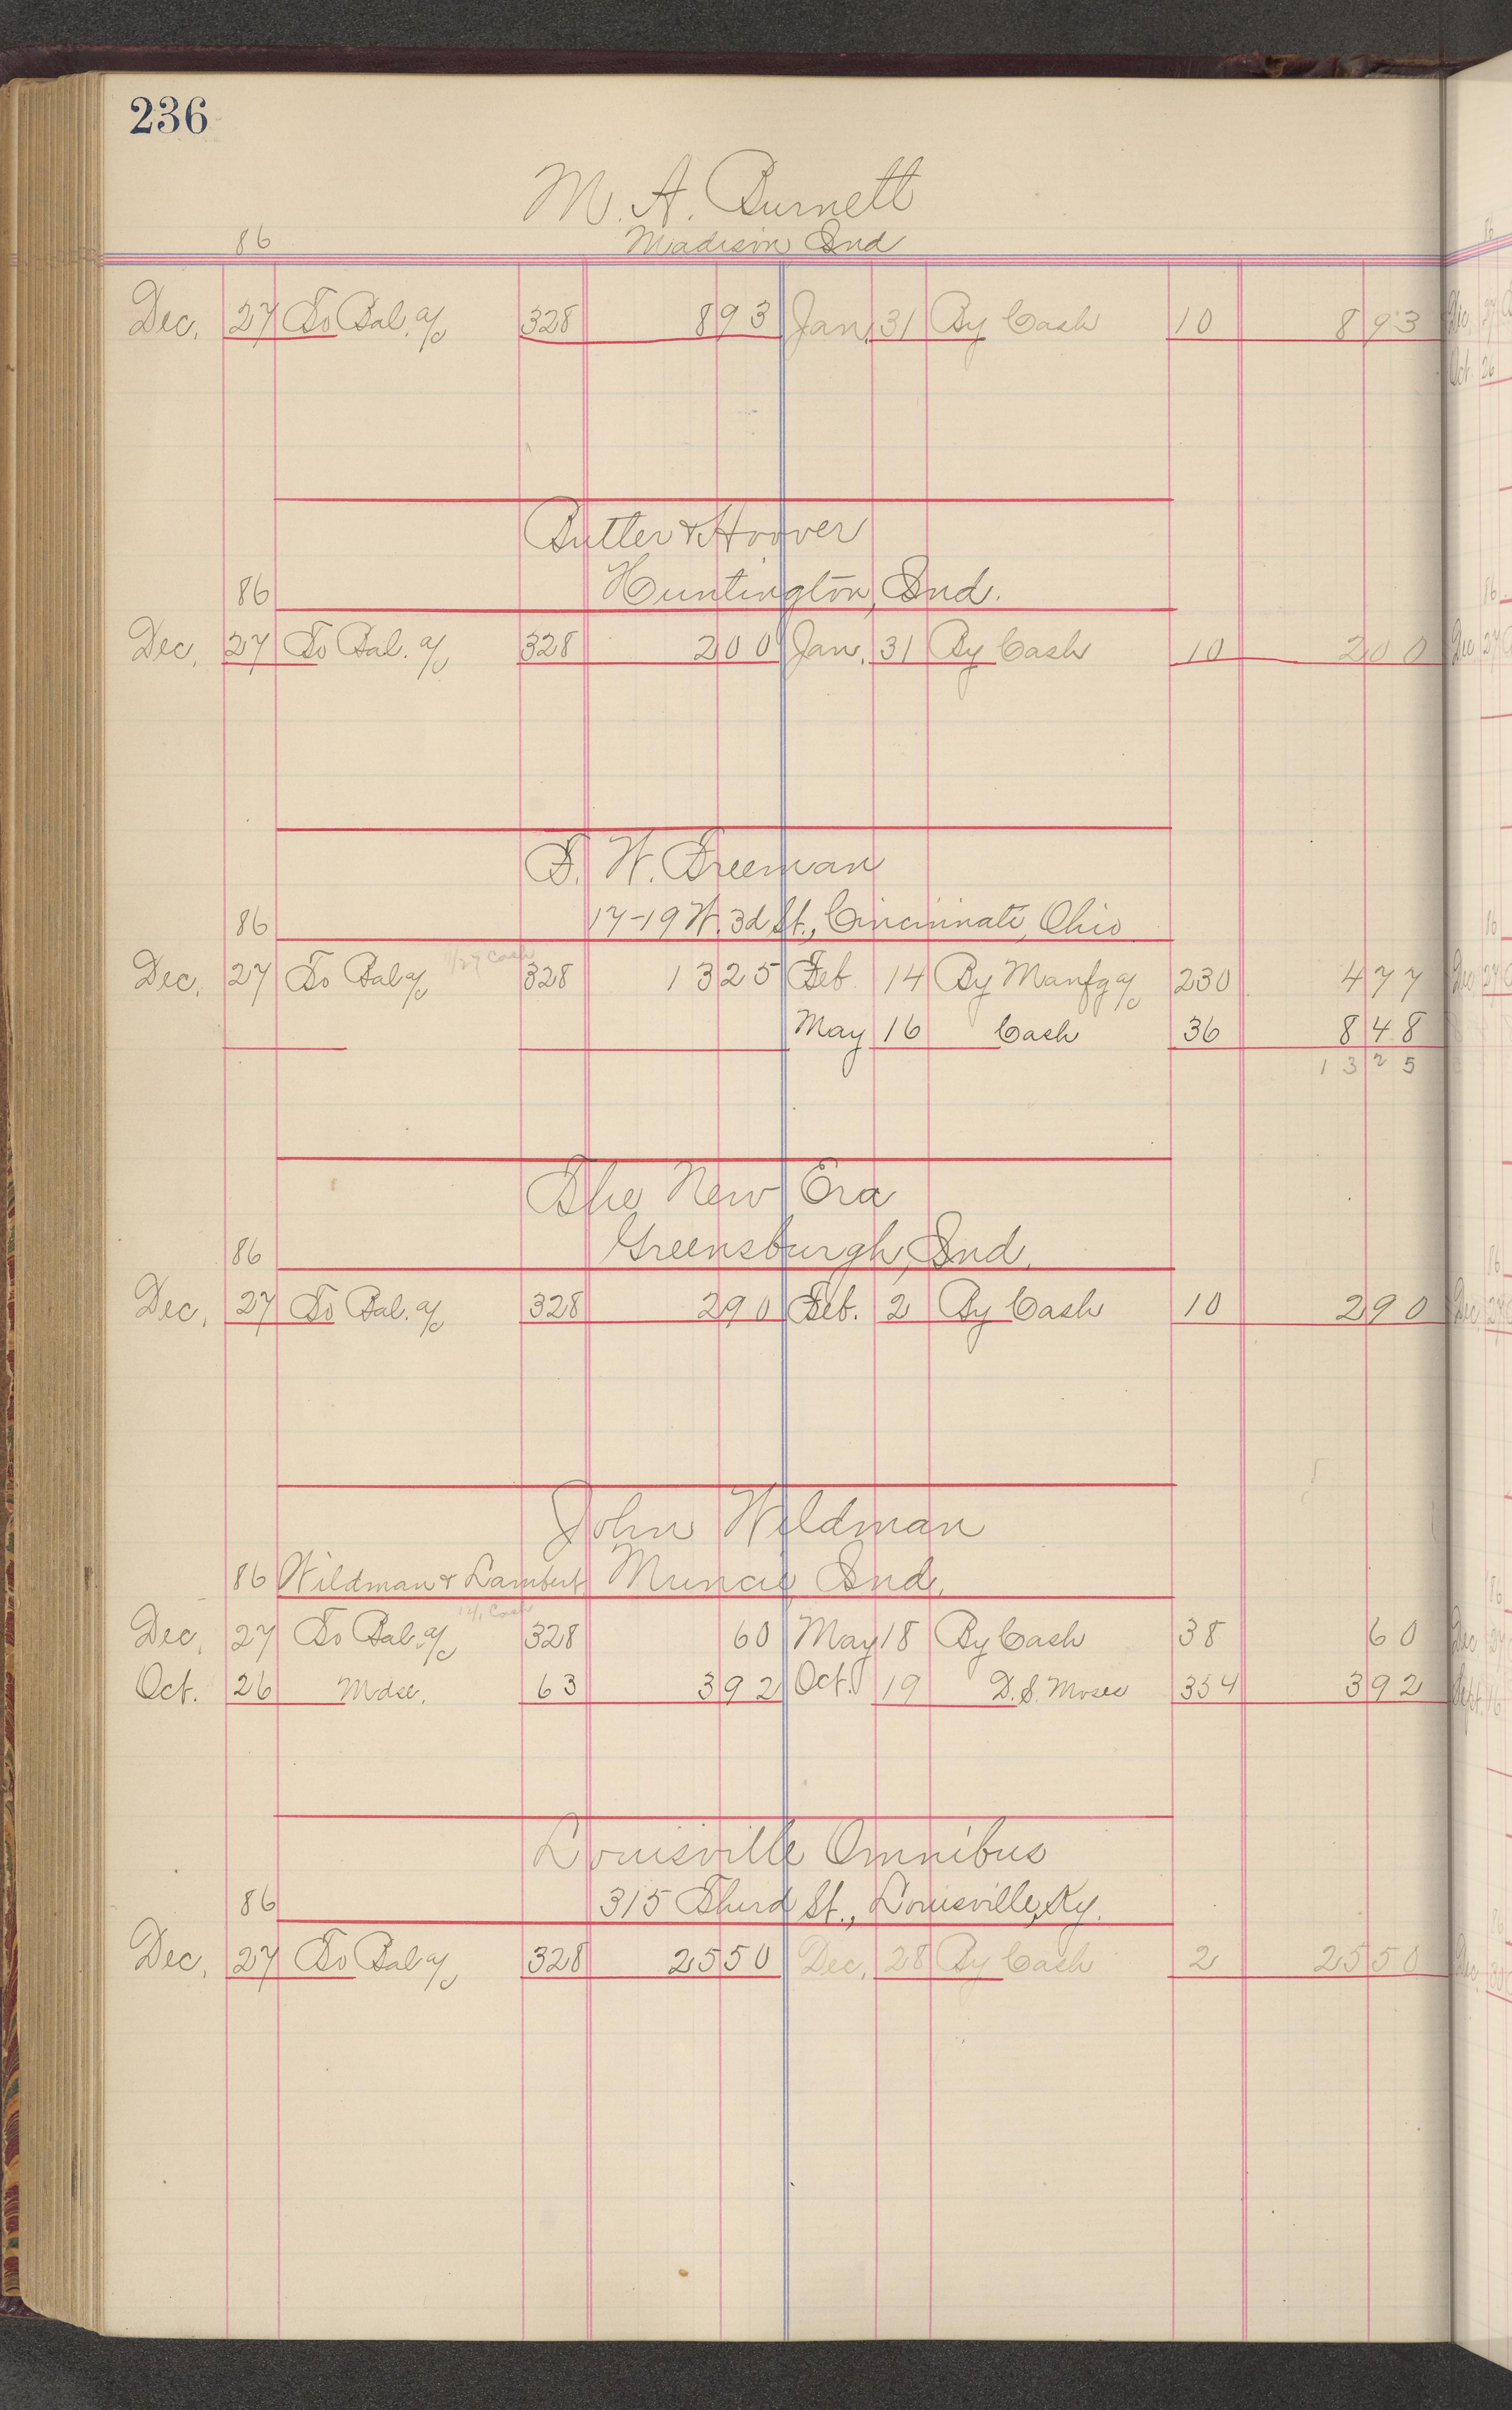 236
M. A. Burnett
86 Madison Ind
Dec. 27 To Bal. a/c 328 8 93 Jan. 31 By Cash 10 8 93
Butler & Hoover
86 Huntington, Ind.
Dec. 27 To Bal. a/c 328 2 00 Jan. 31 By Cash 10 2 00
F. W. Freeman
86 17-19 W. 3d St., Cincinnati, Ohio
Dec. 27 To Bal a/c 11/27 Cash 328 13 25 Feb. 14 By Manfg a/c 230 4 77
May 16 Cash 36 8 48
13 25
The New Era
86 Greensburgh, Ind.
Dec. 27 To Bal. a/c 328 2 90 Feb. 2 By Cash 10 2 90
John Wildman
86 Wildman & Lambert Muncie, Ind.
12/1 Cash
Dec. 27 To Bal. a/c 328 60 May 18 By Cash 38 60
Oct. 26 Mdse. 63 3 92 Oct. 19 D. S. Moses 354 3 92
Louisville Omnibus
86 315 Third St., Louisville, Ky.
Dec. 27 To Bal a/c 328 25 50 Dec. 28 By Cash 2 25 50